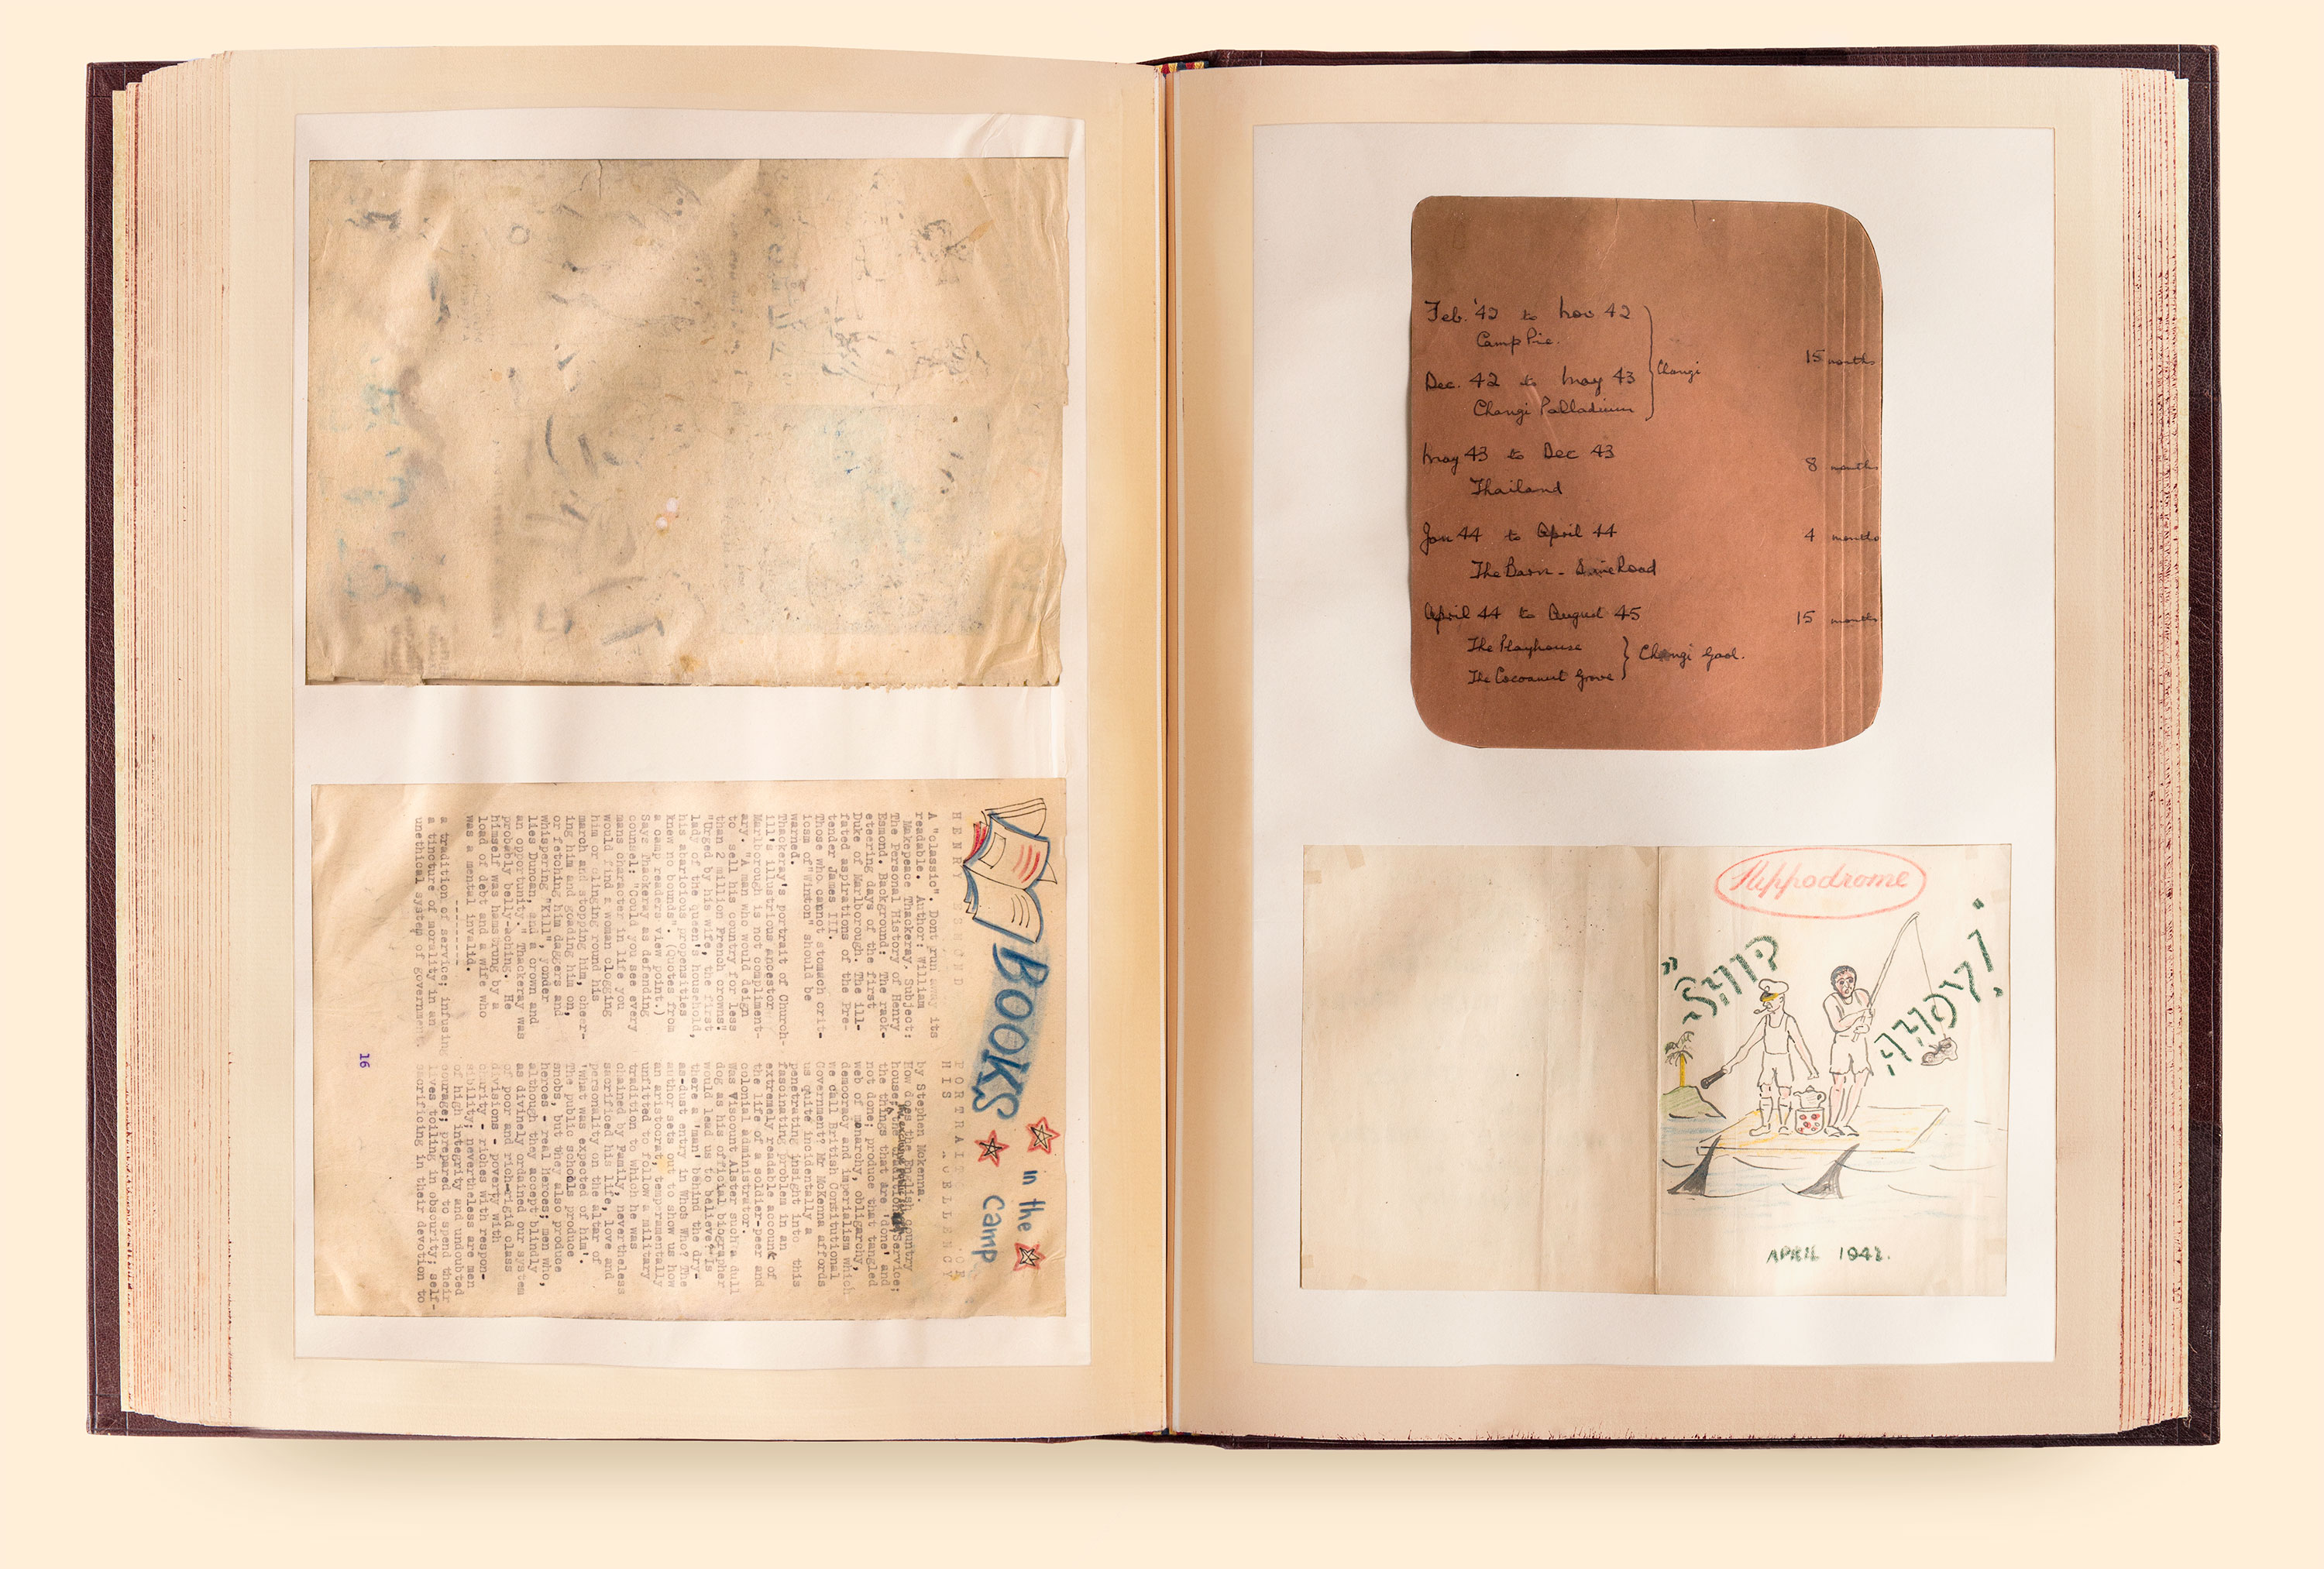 BOOKS
in the
Camp
HENRY
A "classic". Dont run away its
readable. Author: William
Makepeace Thackeray. Subject:
The Personal History of Henry
Esmond. Background: The rack-
eteering days of the first
Duke of Marlborough. The ill-
fated aspirations of the Pre-
tender James III.
Those who cannot stomach crit-
icsm of "Winton" should be
warned.
Thackeray's portrait of Church-
ill's illustrious ancestor
Marlborough is not compliment-
ary. "A man who would deign
to sell his country for less
than 2 million French crowns"
"Urged by his wife, the first
lady of the queen's household,
his avaricious propensities
knew no bounds". (Quotes from
a camp readers view point.)
Says Thackeray as defending
counsel: "Could you see every
mans character in life you
would find a woman clogging
him or clinging round his
march and stopping him, cheer-
ing him and goading him on,
or fetching him daggers and
whispering "Kill", yonder
lies Duncan, and a crown and
an opportunity." Thackeray was
probably belly-aching. He
himself was hamstrung by a
load of debt and a wife who
was a mental invalid.
----------
a tradition of service; infusing
a tincture of morality in an
unethical system of government.
PORTRAIT OF
HIS EXCELLENCY
by Stephen McKenna.
How does the English country
house, the tradition of Service:
the things that are 'done' and
not done: produce that tangled
web of monarchy, obligarchy,
democracy and imperialism which
we call British Constitutional
Government? Mr McKenna affords
us quite incidentally a
penetrating insight into this
fascinating problem in an
extremely readable account of
the life of a soldier-peer and
colonial administrator.
Was Viscount Alster such a dull
dog as his official biographer
would lead us to believe? Is
there a 'man' behind the dry-
as-dust entry in Who's Who? The
author sets out to show us how
an aristocrat, temperamentally
unfitted to follow a military
tradition to which he was
chained by Family, nevertheless
sacrificed his life, love and
personality on the altar of
'what was expected of him'.
The public schools produce
snobs, but they also produce
heroes - real heroes; men who,
although they accept blindly
as divinely ordained our system
of poor and rich-rigid class
divisions - poverty with
charity - riches with respon-
sibility; nevertheless are men
of high integrity and undoubted
courage; prepared to spend their
lives toiling in obscurity; self-
sacrificing in their devotion to
16
Feb. '42 to Nov 42
Camp Pie.
Dec. 42 to May 43
Changi Palladium
Changi
15 months
May 43 to Dec 43
8 months
Thailand
Jan 44 to April 44
4 months
The Barn - Sime Road
April 44 to August 45
15 months
The Playhouse
The Cocoanut Grove
Changi Gaol.
Hippodrome
"SHIP
AHOY!"
APRIL 1942.